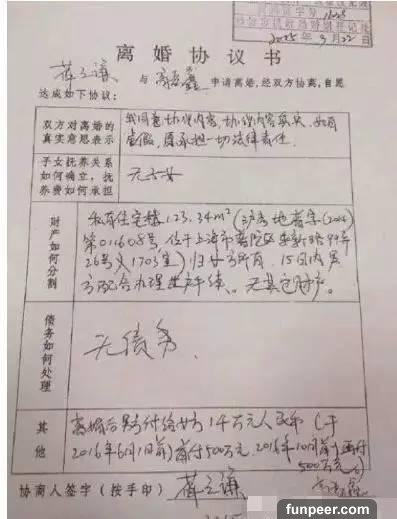 2015年3月22日
离婚协议书
薛之谦 与 高磊鑫 申请离婚,经双方协商,自愿
达成如下协议:
双方对离婚的
真实意思表示
我同意协议内容,协议内容真实,如有
虚假,愿承担一切法律责任.
子女抚养关系
如何确立,抚
养费如何承担
无子女
财产如何分割
私有住宅楼123.34m²
第011608号,位于上海市普陀区
26号 1703室)归女方所有,15日内男
方配合办理过户手续。无其它财产。
债务如何处理
无债务.
其他
离婚后男方付给女方1千万元人民币(于
2016年6月1日前)首付500万元,2016年10月前再付
500万元
协商人签字(按手印) 薛之谦 高磊鑫
funpeer.com